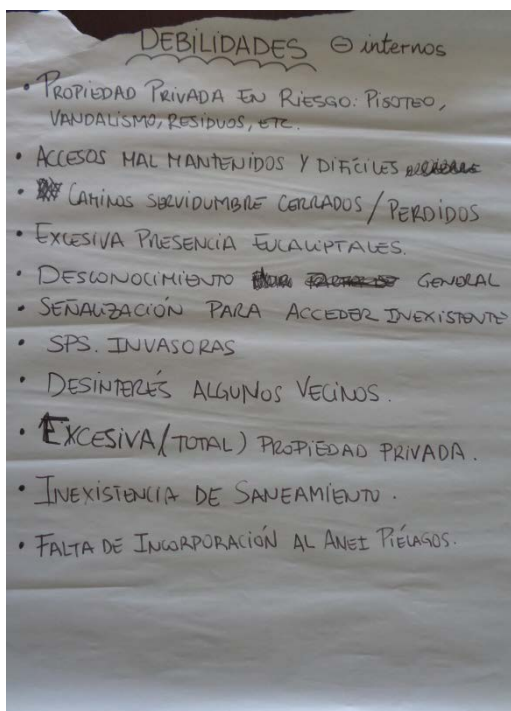 DEBILIDADES ⊖ internos
• PROPIEDAD PRIVADA EN RIESGO: PISOTEO,
VANDALISMO, RESIDUOS, ETC.
• ACCESOS MAL MANTENIDOS Y DIFÍCILES
• CAMINOS SERVIDUMBRE CERRADOS / PERDIDOS
• EXCESIVA PRESENCIA EUCALIPTALES.
• DESCONOCIMIENTO GENERAL
• SEÑALIZACIÓN PARA ACCEDER INEXISTENTE
• SPS. INVASORAS
• DESINTERÉS ALGUNOS VECINOS.
• EXCESIVA/(TOTAL) PROPIEDAD PRIVADA.
• INEXISTENCIA DE SANEAMIENTO.
• FALTA DE INCORPORACIÓN AL ANEI PIÉLAGOS.